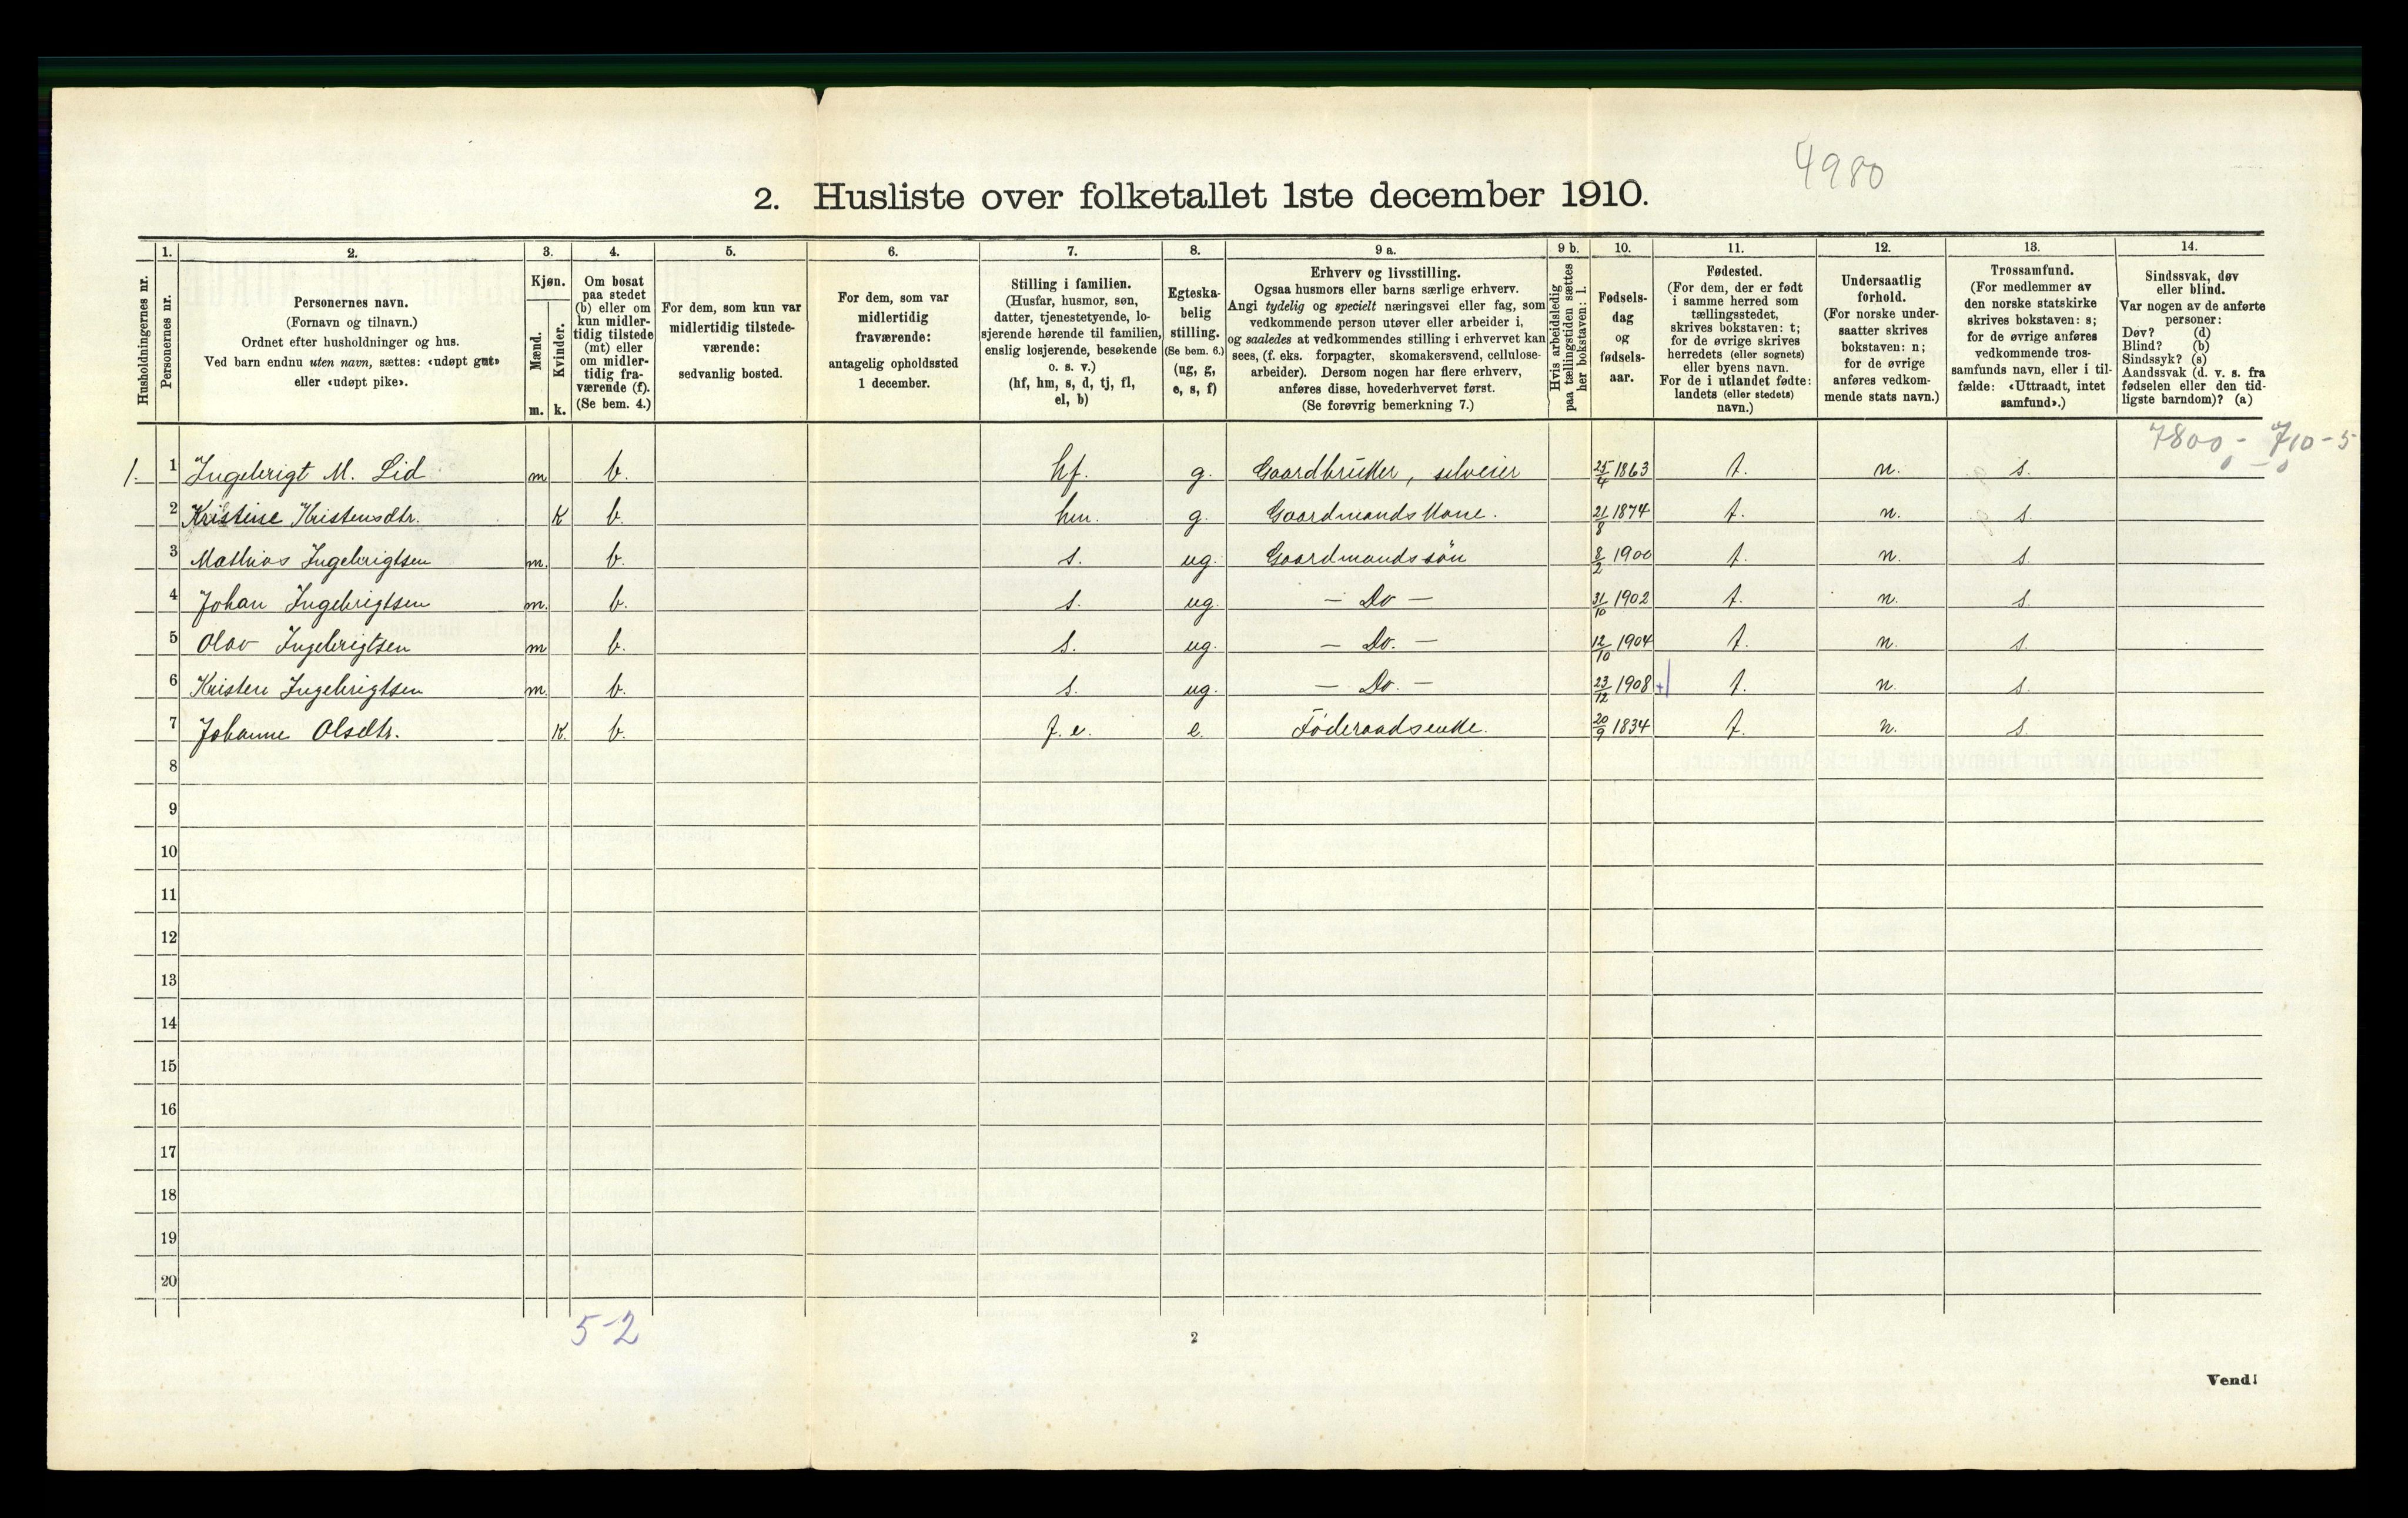 4980
2. Husliste over folketallet 1ste december 1910.
Husholdningernes nr.
1.
Personernes nr.
2.
Personernes navn.
(Fornavn og tilnavn.)
Ordnet efter husholdninger og hus.
Ved barn endnu uten navn, sættes: «udøpt gut»
eller «udøpt pike».
3.
Kjøn.
Mænd.
Kvinder.
m. k.
4.
Om bosat
paa stedet
(b) eller om
kun midler-
tidig tilstede
(mt) eller
om midler-
tidig fra-
værende (f).
(Se bem. 4.)
5.
For dem, som kun var
midlertidig tilstede-
værende:
sedvanlig bosted.
6.
For dem, som var
midlertidig
fraværende:
antagelig opholdssted
1 december.
7.
Stilling i familien.
(Husfar, husmor, søn,
datter, tjenestetyende, lo-
sjerende hørende til familien,
enslig losjerende, besøkende
o. s. v.)
(hf, hm, s, d, tj, fl,
el, b)
8.
Egteska-
belig
stilling.
(Se bem. 6.)
(ug, g,
e, s, f)
9 a.
Erhverv og livsstilling.
Ogsaa husmors eller barns særlige erhverv.
Angi tydelig og specielt næringsvei eller fag, som
vedkommende person utøver eller arbeider i,
og saaledes at vedkommendes stilling i erhvervet kan
sees, (f. eks. forpagter, skomakersvend, cellulose-
arbeider). Dersom nogen har flere erhverv,
anføres disse, hovederhvervet først.
(Se forøvrig bemerkning 7.)
9 b.
Hvis arbeidsledig
paa tællingstiden sættes
her bokstaven: l.
10.
Fødsels-
dag
og
fødsels-
aar.
11.
Fødested.
(For dem, der er født
i samme herred som
tællingsstedet,
skrives bokstaven: t;
for de øvrige skrives
herredets (eller sognets)
eller byens navn.
For de i utlandet fødte:
landets (eller stedets)
navn.)
12.
Undersaatlig
forhold.
(For norske under-
saatter skrives
bokstaven: n;
for de øvrige
anføres vedkom-
mende stats navn.)
13.
Trossamfund.
(For medlemmer av
den norske statskirke
skrives bokstaven: s;
for de øvrige anføres
vedkommende tros-
samfunds navn, eller i til-
fælde: «Uttraadt, intet
samfund».)
14.
Sindssvak, døv
eller blind.
Var nogen av de anførte
personer:
Døv? (d)
Blind? (b)
Sindssyk? (s)
Aandssvak (d. v. s. fra
fødselen eller den tid-
ligste barndom)? (a)
7800 - 710-5
0 - 0
1. 1 Ingebrigt M. Lid m b. hf. g. Gaardbruker, selveier 25/4 1863 t. n. s.
2 Kristine Kristensdtr. K b. hm. g. Gaardmandskone. 21/8 1874 t. n. s.
3 Mathias Ingebrigtsen m. b. s. ug. Gaardmandssön 8/2 1900 t. n. s.
4 Johan Ingebrigtsen m. b. s. ug. — Do — 31/10 1902 t. n. s.
5 Olav Ingebrigtsen m b. s. ug. — Do. — 12/10 1904 t. n. s.
6 Kristen Ingebrigtsen m. b. s. ug. — Do. — 23/12 1908 t. n. s.
7 Johanne Olsdtr. K. b. f. e. e. Föderaadsenke. 20/9 1834 t. n. s.
8
9
10
11
12
13
14
15
16
17
18
19
20
5-2
2
Vend!